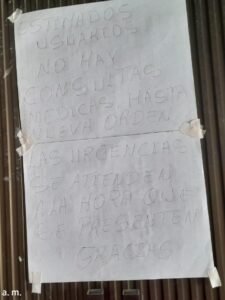 ESTIMADOS
USUARIOS
NO HAY
CONSULTAS
MEDICAS HASTA
NUEVA ORDEN
LAS URGENCIAS
SE ATIENDEN
A LA HORA QUE
SE PRESENTEN
GRACIAS
a. m.